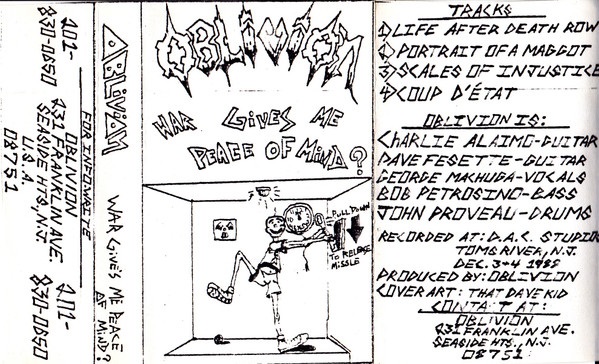 401-
830-0650
FOR INFO WRITE
OBLIVION
431 FRANKLIN AVE
SEASIDE HTS., N.J.
U.S.A.
08751
401-
830-0650
OBLIVION
WAR GIVES ME PEACE
OF MIND?
OBLIVION
WAR GIVES ME
PEACE OF MIND?
PULL DOWN
TO RELEASE
MISSLE
TRACKS
1)LIFE AFTER DEATH ROW
2)PORTRAIT OF A MAGGOT
3)SCALES OF INJUSTICE
4)COUP D'ÉTAT
OBLIVION IS:
CHARLIE ALAIMO-GUITAR
DAVE FESETTE-GUITAR
GEORGE MACHUGA-VOCALS
BOB PETROSINO-BASS
JOHN PROVEAU-DRUMS
RECORDED AT: D.A.C. STUDIO
TOMS RIVER, N.J.
DEC. 3-4 1985
PRODUCED BY: OBLIVION
COVER ART: THAT DAVE KID
CONTACT AT:
OBLIVION
431 FRANKLIN AVE.
SEASIDE HTS., N.J.
08751